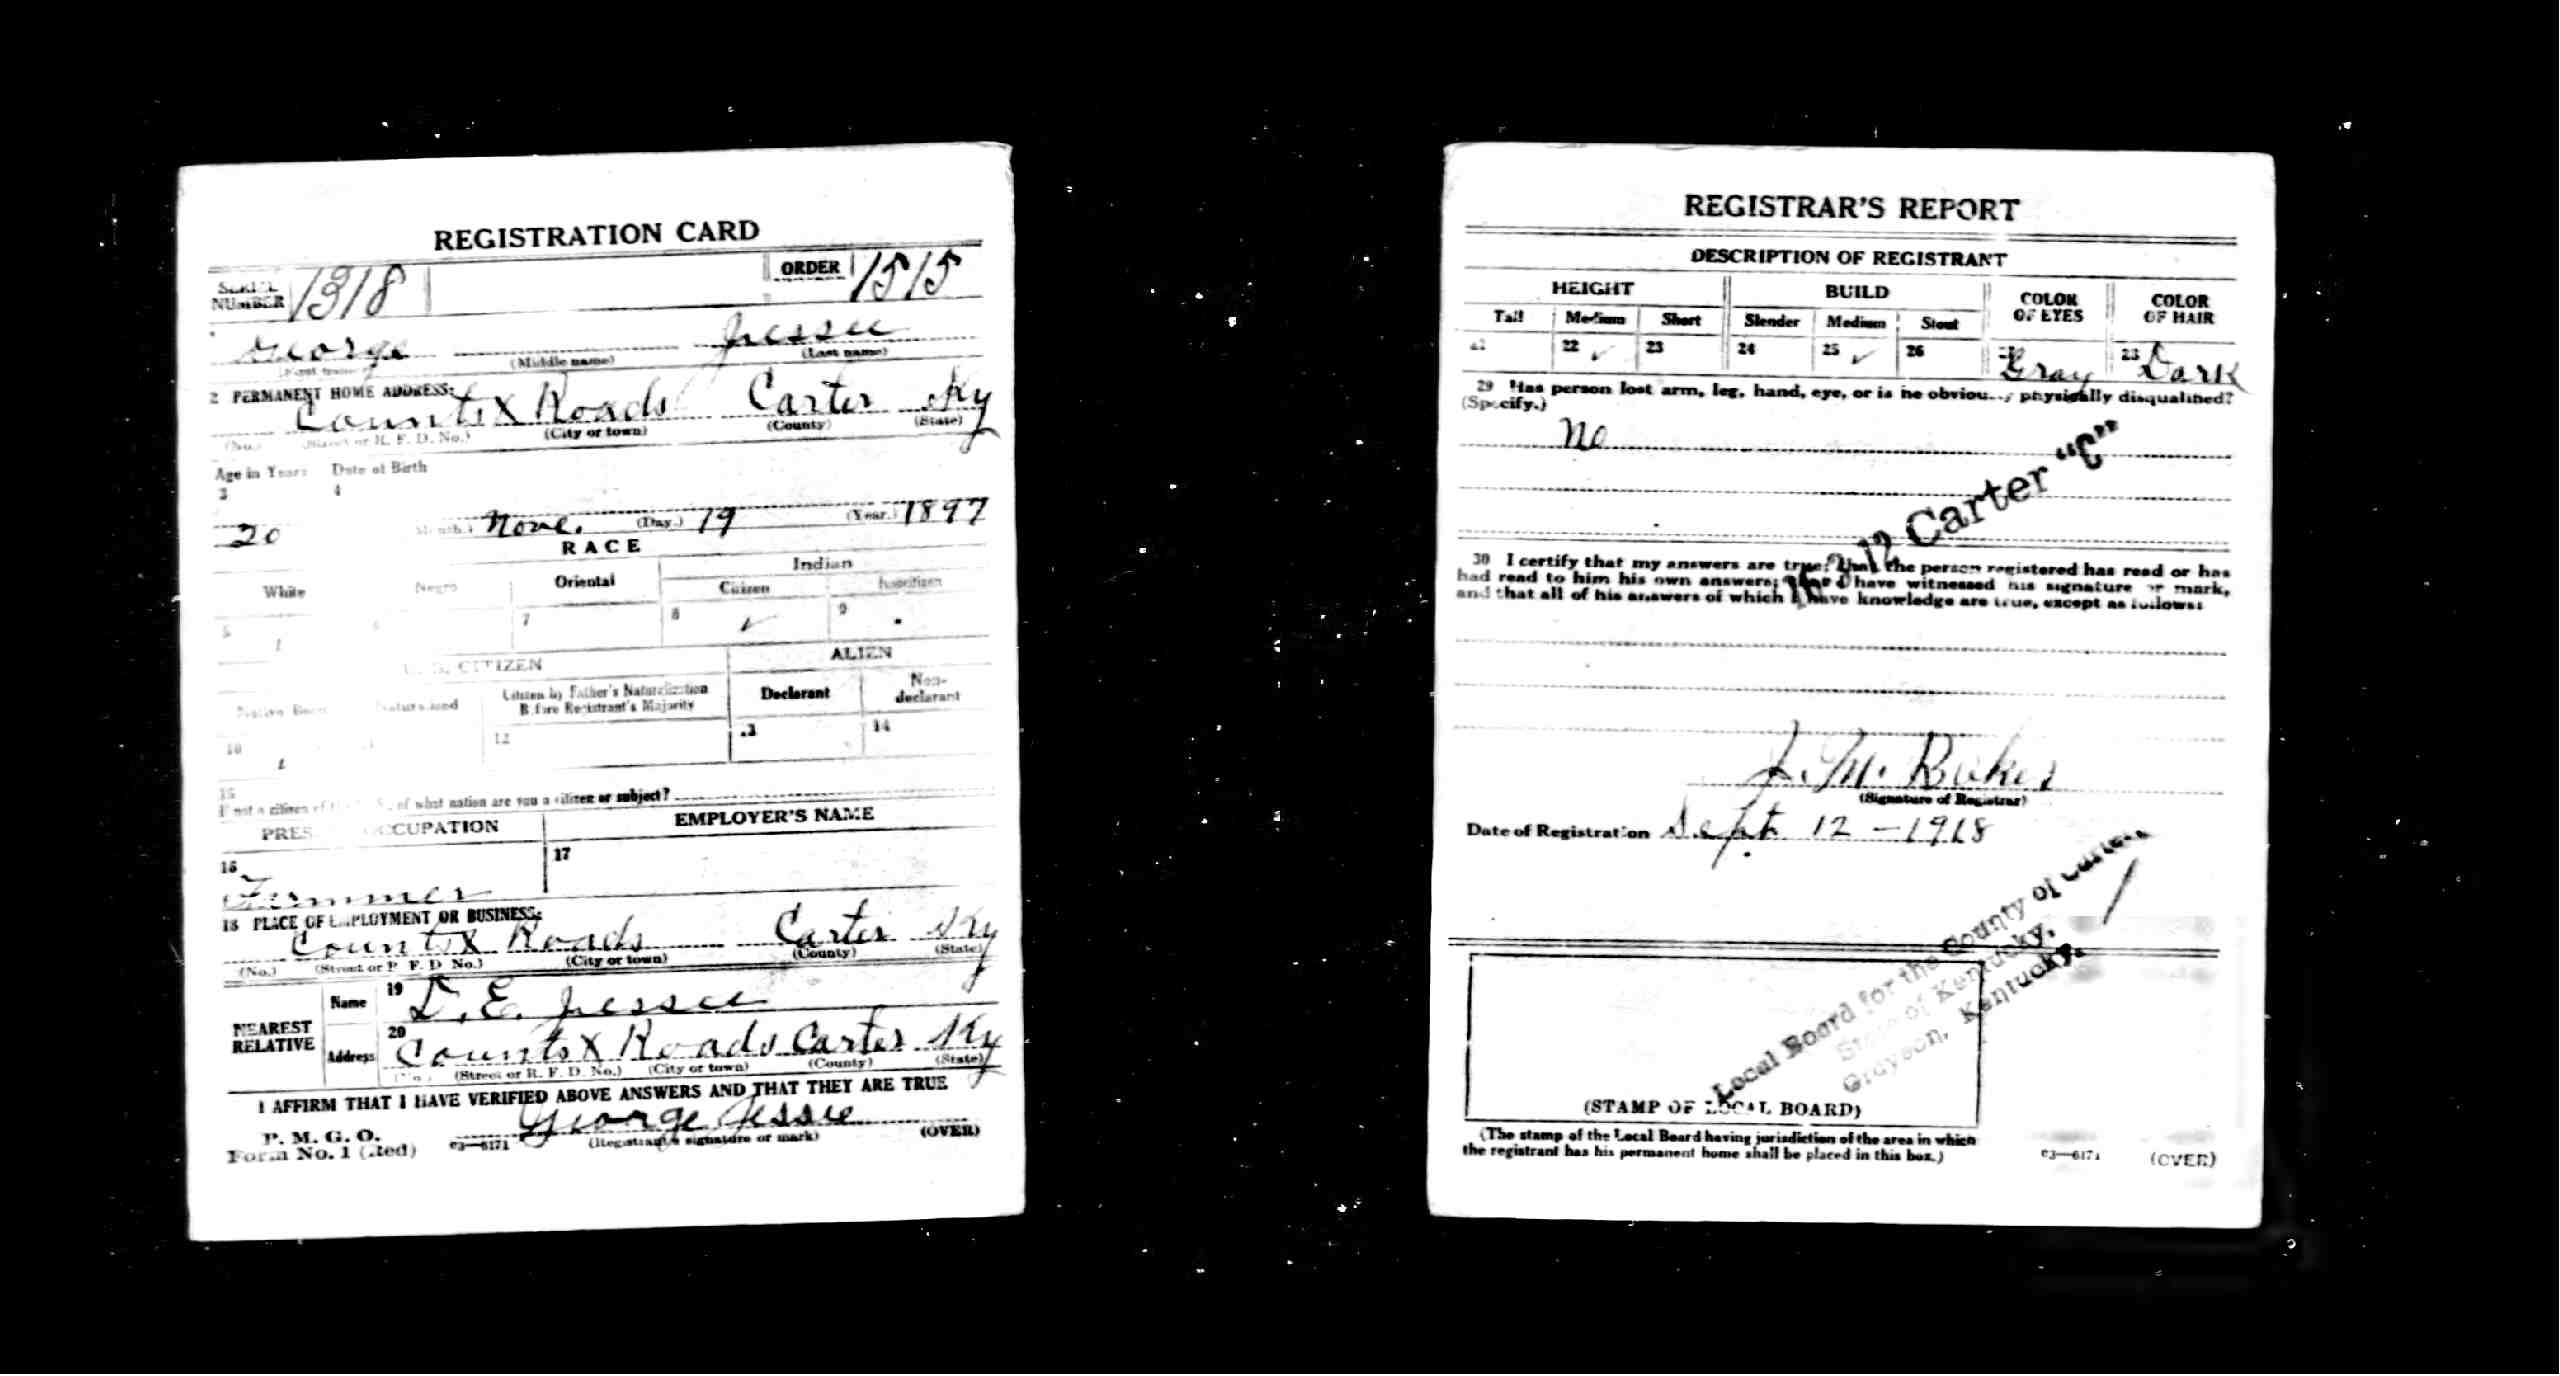 REGISTRATION CARD
SERIAL NUMBER 1318 ORDER 1515
George Jessee
(Middle name) (Last name)
2 PERMANENT HOME ADDRESS:
Counts X Roads Carter Ky
(No.) (Street or R. F. D. No.) (City or town) (County) (State)
Age in Years Date of Birth
3 4
20 (Month.) Nove. (Day.) 19 (Year.) 1897
RACE
White Negro Oriental Indian
Citizen Noncitizen
5 7 8 ✓ 9
U. S. CITIZEN ALIEN
Native Born Naturalized Citizen by Father's Naturalization Before Registrant's Majority Declarant Non-declarant
10 12 13 14
15
If not a citizen of the U. S., of what nation are you a citizen or subject?
PRESENT OCCUPATION EMPLOYER'S NAME
16 17
Farmmer
18 PLACE OF EMPLOYMENT OR BUSINESS:
Counts X Roads Carter Ky
(No.) (Street or R. F. D. No.) (City or town) (County) (State)
NEAREST RELATIVE Name 19 D. E. Jessee
Address 20 Counts X Roads Carter Ky
(No.) (Street or R. F. D. No.) (City or town) (County) (State)
I AFFIRM THAT I HAVE VERIFIED ABOVE ANSWERS AND THAT THEY ARE TRUE
George Jessie
P. M. G. O.
Form No. 1 (Red) 03—6171 (Registrant's signature or mark) (OVER)
REGISTRAR'S REPORT
DESCRIPTION OF REGISTRANT
HEIGHT BUILD COLOR OF EYES COLOR OF HAIR
Tall Medium Short Slender Medium Stout
21 22 ✓ 23 24 25 ✓ 26 Gray Dark
29 Has person lost arm, leg, hand, eye, or is he obviously physically disqualified?
(Specify.)
No
16-2-12 Carter "C"
30 I certify that my answers are true; that the person registered has read or has
had read to him his own answers; that I have witnessed his signature or mark,
and that all of his answers of which I have knowledge are true, except as follows:
J. M.
(Signature of Registrar)
Date of Registration Sept. 12 - 1918
Local Board for the County of Carter,
State of Kentucky,
Grayson, Kentucky.
(STAMP OF LOCAL BOARD)
(The stamp of the Local Board having jurisdiction of the area in which
the registrant has his permanent home shall be placed in this box.)
03—6171 (OVER)